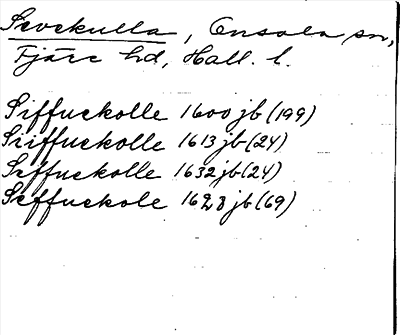 Sevekulla, Onsala sn,
Fjäre hd, Hall. l.
Siffuekolle 1600 jb (199)
Siiffuekolle 1613 jb (24)
Seffuekolle 1632 jb (24)
Seffuekole 1628 jb (69)